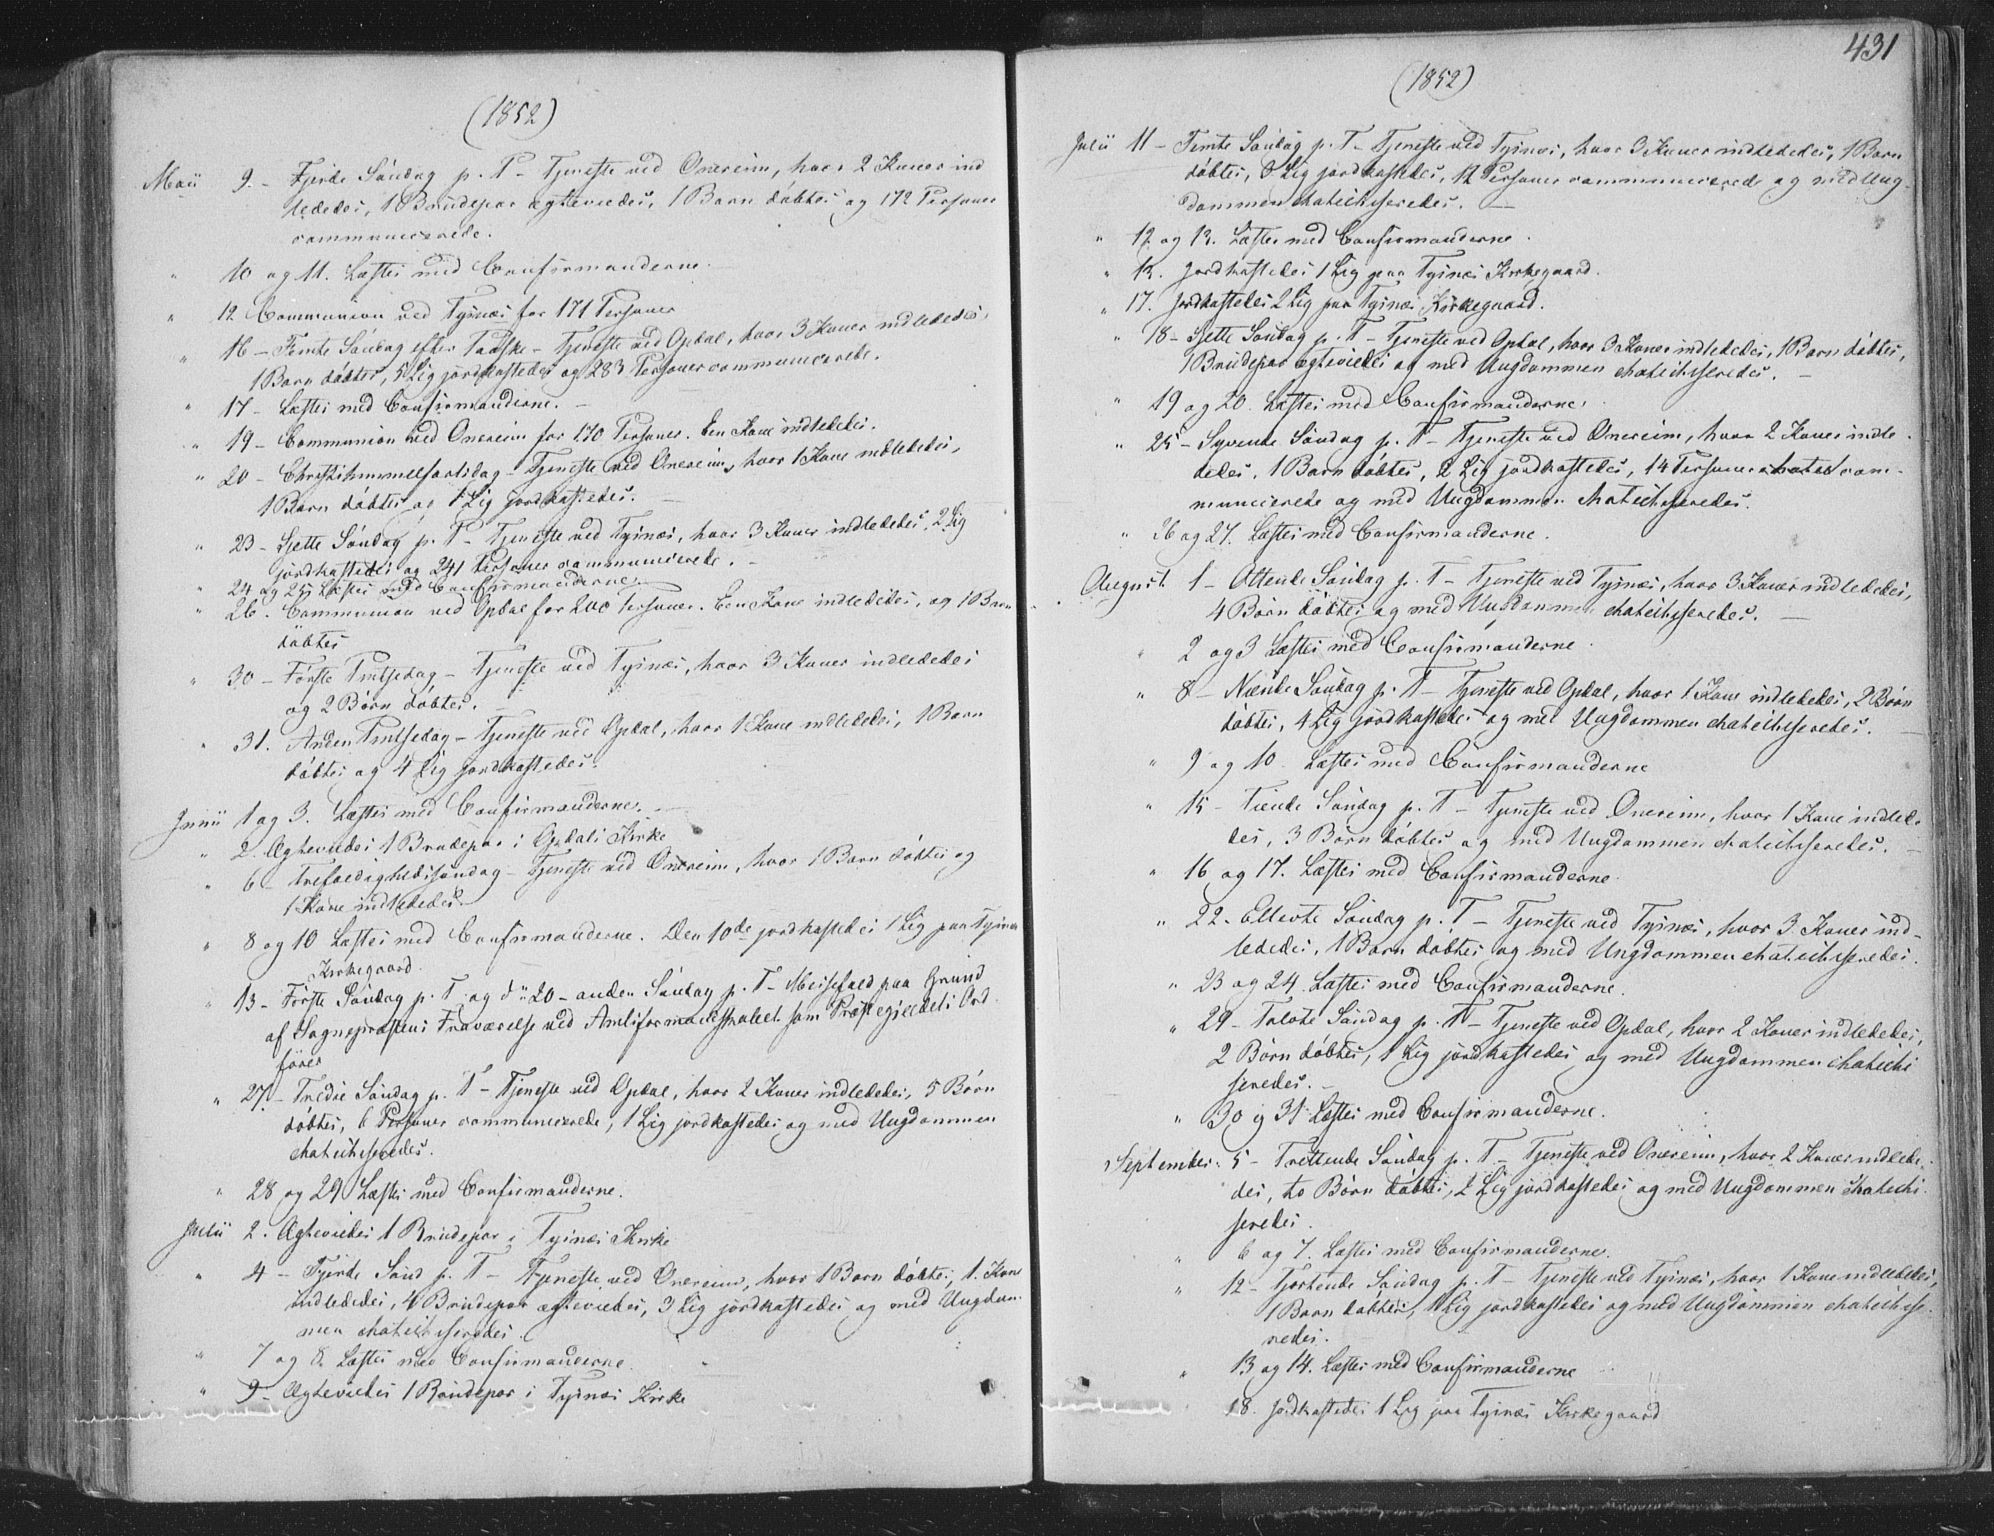 (1852)
Maii 9. - Fjerde Söndag p. P - Tjeneste ved Onereim, hvor 2 Koner ind
lededes, 1 Brudepar ægteviedes, 1 Barn döbtes og 172 Personer
communicerede.
" 10 og 11. Læstes med Confirmanderne.
" 12 Communion ved Tysnæs for 171 Personer
" 16 - Femte Söndag efter Paaske - Tjeneste ved Opdal, hvor 3 Koner indlededes,
1 Barn döbtes, 5 Lig jordkastedes og 283 Personer communicerede.
" 17 - Læstes med Confirmanderne. -
" 19 - Communion ved Onereim for 170 Personer. Een Kone indlededes.
" 20 - Christi himmelfartsdag - Tjeneste ved Onereim, hvor 1 Kone indlededes,
1 Barn döbtes og 1 Lig jordkastedes. -
" 23 - Sjette Söndag p. P - Tjeneste ved Tysnæs, hvor 3 Koner indlededes, 2 Lig
jordkastedes og 241 Personer communicerede. -
" 24 og 25 Læstes med Confirmanderne.
" 26. Communion ved Opdal for 200 Personer. Een Kone indlededes, og 1 Barn
döbtes
" 30 - Förste Pintsedag - Tjeneste ved Tysnæs, hvor 3 Koner indlededes
og 2 Börn döbtes. -
" 31. Anden Pintsedag - Tjeneste ved Opdal, hvor 1 Kone indlededes, 1 Barn
döbtes og 4 Lig jordkastedes.
Junii 1 og 3. Læstes med Confirmanderne. -
" 2. Ægteviedes 1 Brudepar i Opdals Kirke
" 6 - Trefoldighedssöndag - Tjeneste ved Onereim, hvor 1 Barn döbtes og
1 Kone indlededes.
" 8 og 10 Læstes med Confirmanderne. Den 10de jordkastedes 1 Lig paa Tysnæs
Kirkegaard.
" 13 - Förste Söndag p. T. og d" 20 - anden Söndag p. T - Messefald paa Grund
af Sognepræstens Fraværelse ved Amtsformandskabet som Præstegjeldets Ord
förer
" 27. - Tredie Söndag p. T - Tjeneste ved Opdal, hvor 2 Koner indlededes, 5 Börn
döbtes, 6 Personer communicerede, 1 Lig jordkastedes og med Ungdommen
chatechiseredes.
" 28 og 29 Læstes med Confirmanderne.
Julii 2. Ægteviedes 1 Brudepar i Tysnæs Kirke
" 4 - Fjerde Sönd p. T - Tjeneste ved Onereim, hvor 1 Barn döbtes, 1. Kone
indlededes, 4 Brudepar ægteviedes, 3 Lig jordkastedes og med Ungdom
men chatechiseredes.
" 7 og 8. Læstes med Confirmanderne.
" 9 - Ægteviedes 1 Brudepar i Tysnæs Kirke
431
(1852)
Julii 11 - Femte Söndag p. T - Tjeneste ved Tysnæs, hvor 3 Koner indlededes, 1 Barn
döbtes, 3 Lig jordkastedes, 12 Personer communicerede og med Ung-
dommen chatechiseredes. -
" 12 og 13. Læstes med Confirmanderne.
" 13. Jordkastedes 1 Lig paa Tysnæs Kirkegaard.
" 17. Jordkastedes 2 Lig paa Tysnæs Kirkegaard.
" 18 - Sjette Söndag p. T - Tjeneste ved Opdal, hvor 3 Koner indlededes, 1 Barn döbtes,
1 Brudepar ægteviedes og med Ungdommen chatechiseredes. -
" 19 og 20. Læstes med Confirmanderne.
" 25 - Syvende Söndag p. T - Tjeneste ved Onereim, hvor 2 Koner indle
dedes, 1 Barn döbtes, 2 Lig jordkastedes, 14 Personer chatech com-
municerede og med Ungdommen chatechiseredes.
" 26 og 27. Læstes med Confirmanderne.
August 1 - Ottende Söndag p. T - Tjeneste ved Tysnæs, hvor 3 Koner indlededes,
4 Börn döbtes og med Ungdommen chatechiseredes. -
" 2 og 3 Læstes med Confirmanderne.
" 8 - Niende Söndag p. T - Tjeneste ved Opdal, hvor 1 Kone indlededes, 2 Börn
döbtes, 4 Lig jordkastedes og med Ungdommen chatechiseredes. -
" 9 og 10. Læstes med Confirmanderne
" 15 - Tiende Söndag p. T - Tjeneste ved Onereim, hvor 1 Kone indlede
des, 3 Börn döbtes og med Ungdommen chatechiseredes. -
" 16 og 17. Læstes med Confirmanderne.
" 22. Ellevte Söndag p. T - Tjeneste ved Tysnæs, hvor 3. Koner ind-
lededes, 1 Barn döbtes og med Ungdommen chatechiseredes.
" 23 og 24 Læstes med Confirmanderne.
" 29 - Tolvte Söndag p. T - Tjeneste ved Opdal, hvor 2 Koner indlededes,
2 Börn döbtes, 1 Lig jordkastedes og med Ungdommen chatechi
seredes. -
" 30 og 31 Læstes med Confirmanderne.
September. 5 - Trettende Söndag p. T - Tjeneste ved Onereim, hvor 2 Koner indlede-
des, to Börn döbtes, 2 Lig jordkastedes og med Ungdommen chatechi-
seredes.
" 6 og 7. Læstes med Confirmanderne.
" 12 - Fjortende Söndag p. T - Tjeneste ved Tysnæs, hvor 1 Kone indlededes,
1 Barn döbtes, 1 Lig jordkastedes og med Ungdommen chatechise-
redes.
" 13 og 14. Læstes med Confirmanderne
18. Jordkastedes 1 Lig paa Tysnæs Kirkegaard